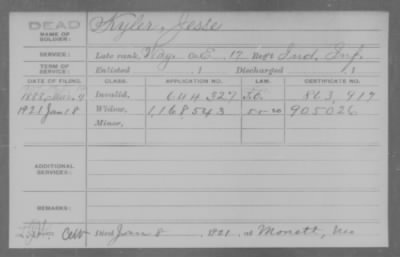 DEAD
NAME OF SOLDIER: Kyler, Jesse
SERVICE: Late rank, Co. E, 17 Reg't Ind. Inf.
TERM OF SERVICE: Enlisted , 1 Discharged , 1
DATE OF FILING. CLASS. APPLICATION NO. LAW. CERTIFICATE NO.
1888, Invalid, 644 327 863,919
1921 Jan 8 Widow, 1,168543 905026
Minor,
ADDITIONAL SERVICES:
REMARKS:
Died Jan 8 1921, at Monett, Mo